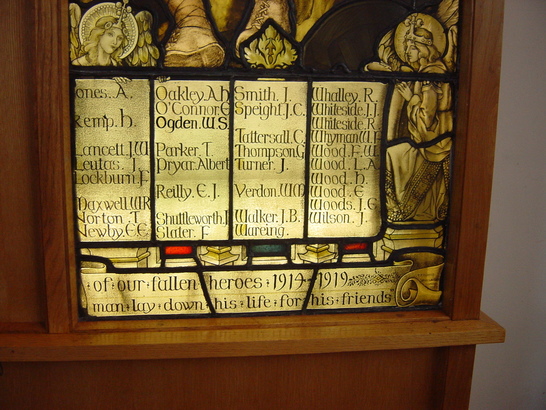 ones. A.
Kemp. h.
Lancett. J.W
Leutas. J.
Lockburn. F
Maxwell W.R
Norton. T.
Newby. E.E.
Oakley. A.h
O'Connor. E
Ogden. W.S.
Parker. T.
Pryar. Albert
Reilly. E. J.
Shuttleworth. J
Slater. F
Smith. J.
Speight. J.C.
Tattersall. C.
Thompson. G
Turner. J.
Verdon. W.M
Walker. J.B.
Wareing.
Whalley. R.
Whiteside. J.J.
Whiteside. R.
Whyman. W.E
Wood. F. W.
Wood. L. A.
Wood. h.
Wood. E.
Woods. J. G
Wilson. J.
of our fallen heroes 1914 1919
man lay down his life for his friends